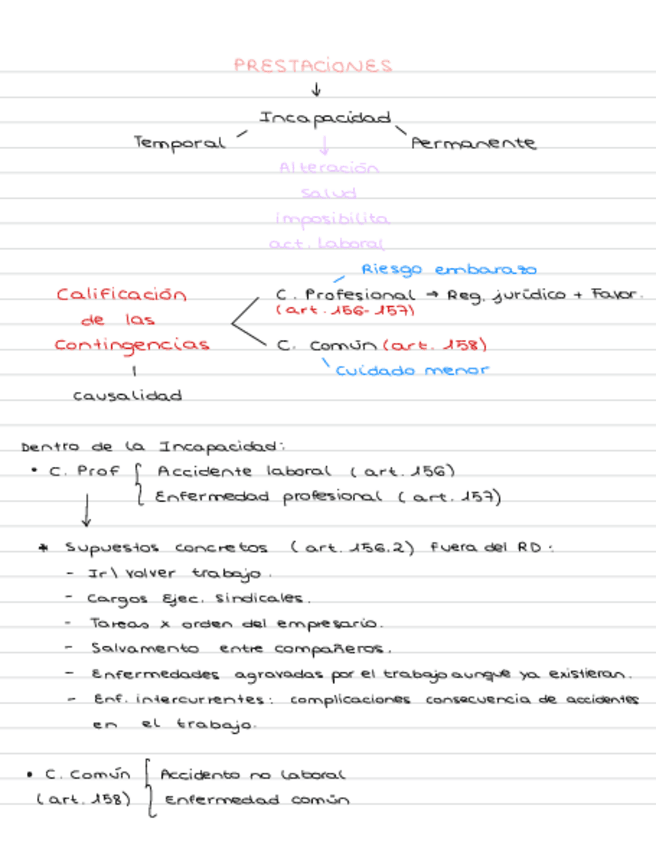 PRESTACIONES
↓
Incapacidad
Temporal Permanente
↓
Alteración
Salud
imposibilita
act. Laboral
Riesgo embarazo
Calificación C. Profesional → Reg. jurídico + Favor.
de las (art. 156-157)
Contingencias C. común (art. 158)
Cuidado menor
causalidad
Dentro de la Incapacidad:
• C. Prof { Accidente laboral (art. 156)
Enfermedad profesional (art. 157)
↓
* Supuestos concretos (art. 156.2) fuera del RD:
- Ir \ volver trabajo.
- Cargos Ejec. sindicales.
- Tareas x orden del empresario.
- Salvamento entre compañeros.
- Enfermedades agravadas por el trabajo aunque ya existieran.
- Enf. intercurrentes: complicaciones consecuencia de accidentes
en el trabajo.
• C. Común { Accidento no laboral
(art. 158) Enfermedad común